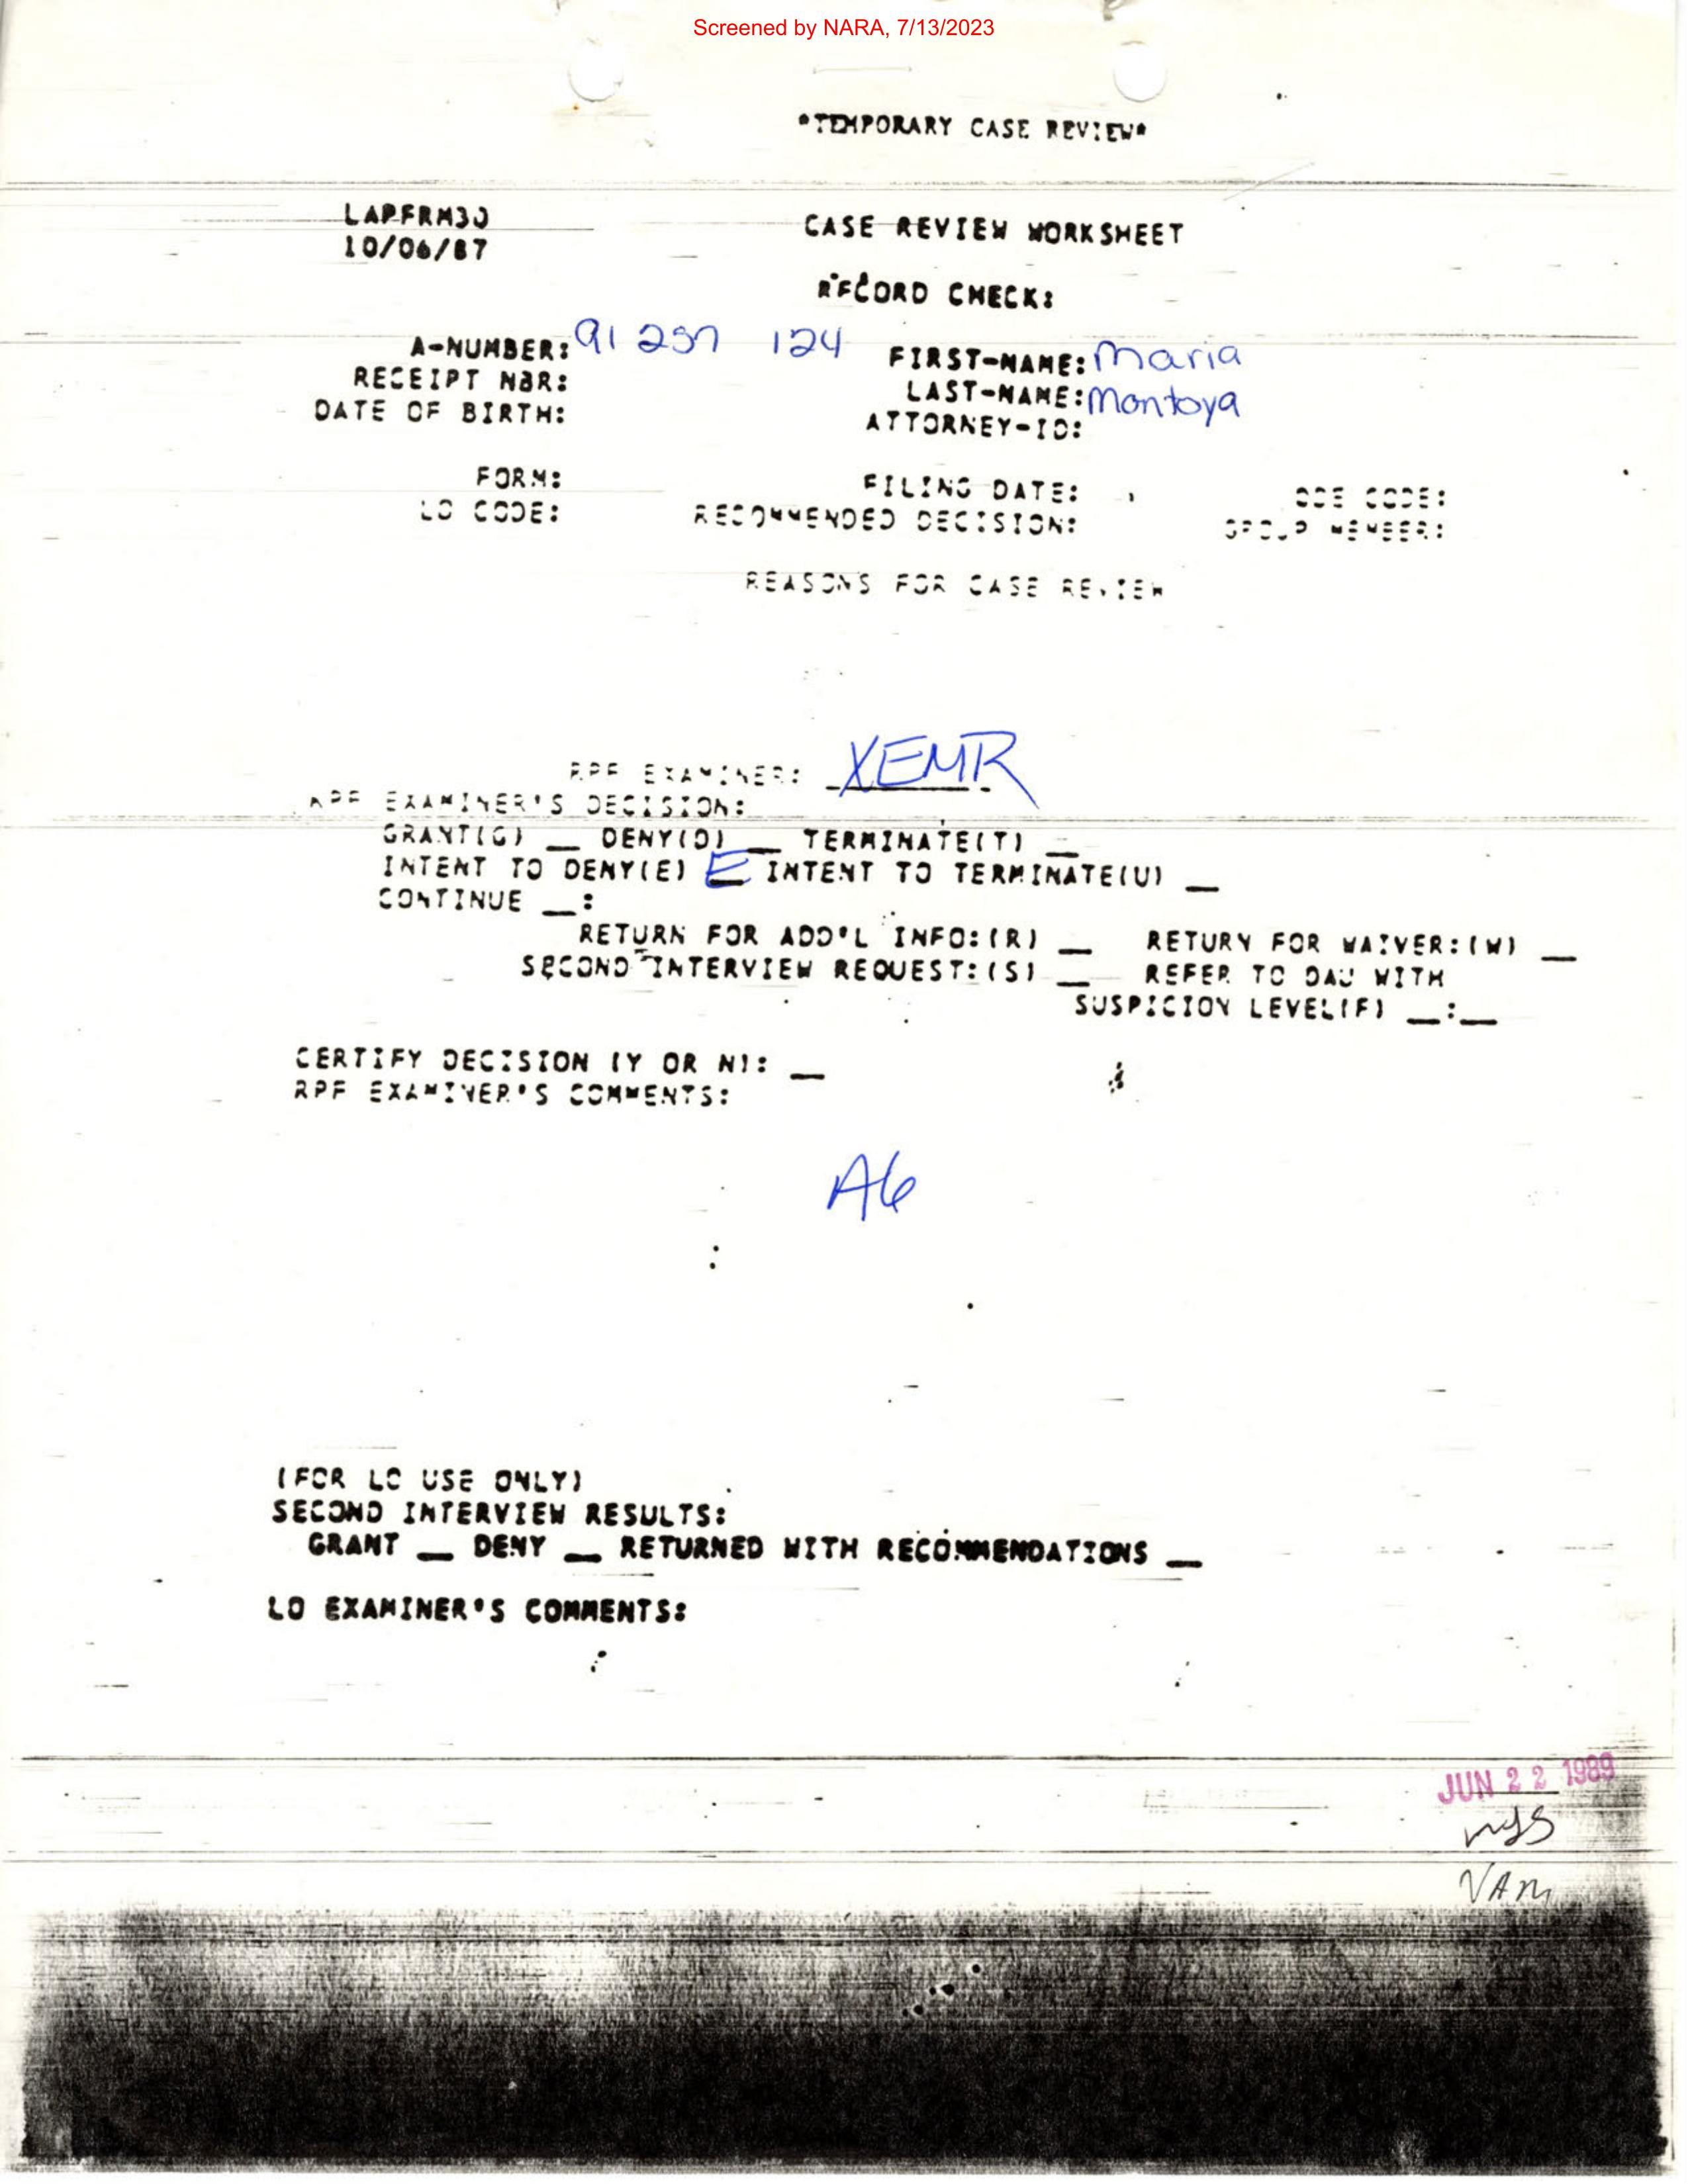 Screened by NARA, 7/13/2023
*TEMPORARY CASE REVIEW*
LAPFRM30
10/06/87
CASE REVIEW WORKSHEET
RECORD CHECK:
A-NUMBER: 91 257 124 FIRST-NAME: Maria
RECEIPT NBR: LAST-NAME: Montoya
DATE OF BIRTH: ATTORNEY-ID:
FORM: FILING DATE: CODE:
LO CODE: RECOMMENDED DECISION: GROUP MEMBER:
REASONS FOR CASE REVIEW
RPF EXAMINER: XEMR
RPF EXAMINER'S DECISION:
GRANT(G) __ DENY(D) __ TERMINATE(T) __
INTENT TO DENY(E) E INTENT TO TERMINATE(U) __
CONTINUE __:
RETURN FOR ADD'L INFO:(R) __ RETURN FOR WAIVER:(W) __
SECOND INTERVIEW REQUEST:(S) __ REFER TO DAU WITH
SUSPICION LEVEL(F) __:__
CERTIFY DECISION (Y OR N): __
RPF EXAMINER'S COMMENTS:
A6
(FOR LO USE ONLY)
SECOND INTERVIEW RESULTS:
GRANT __ DENY __ RETURNED WITH RECOMMENDATIONS __
LO EXAMINER'S COMMENTS:
JUN 22 1989
VAM